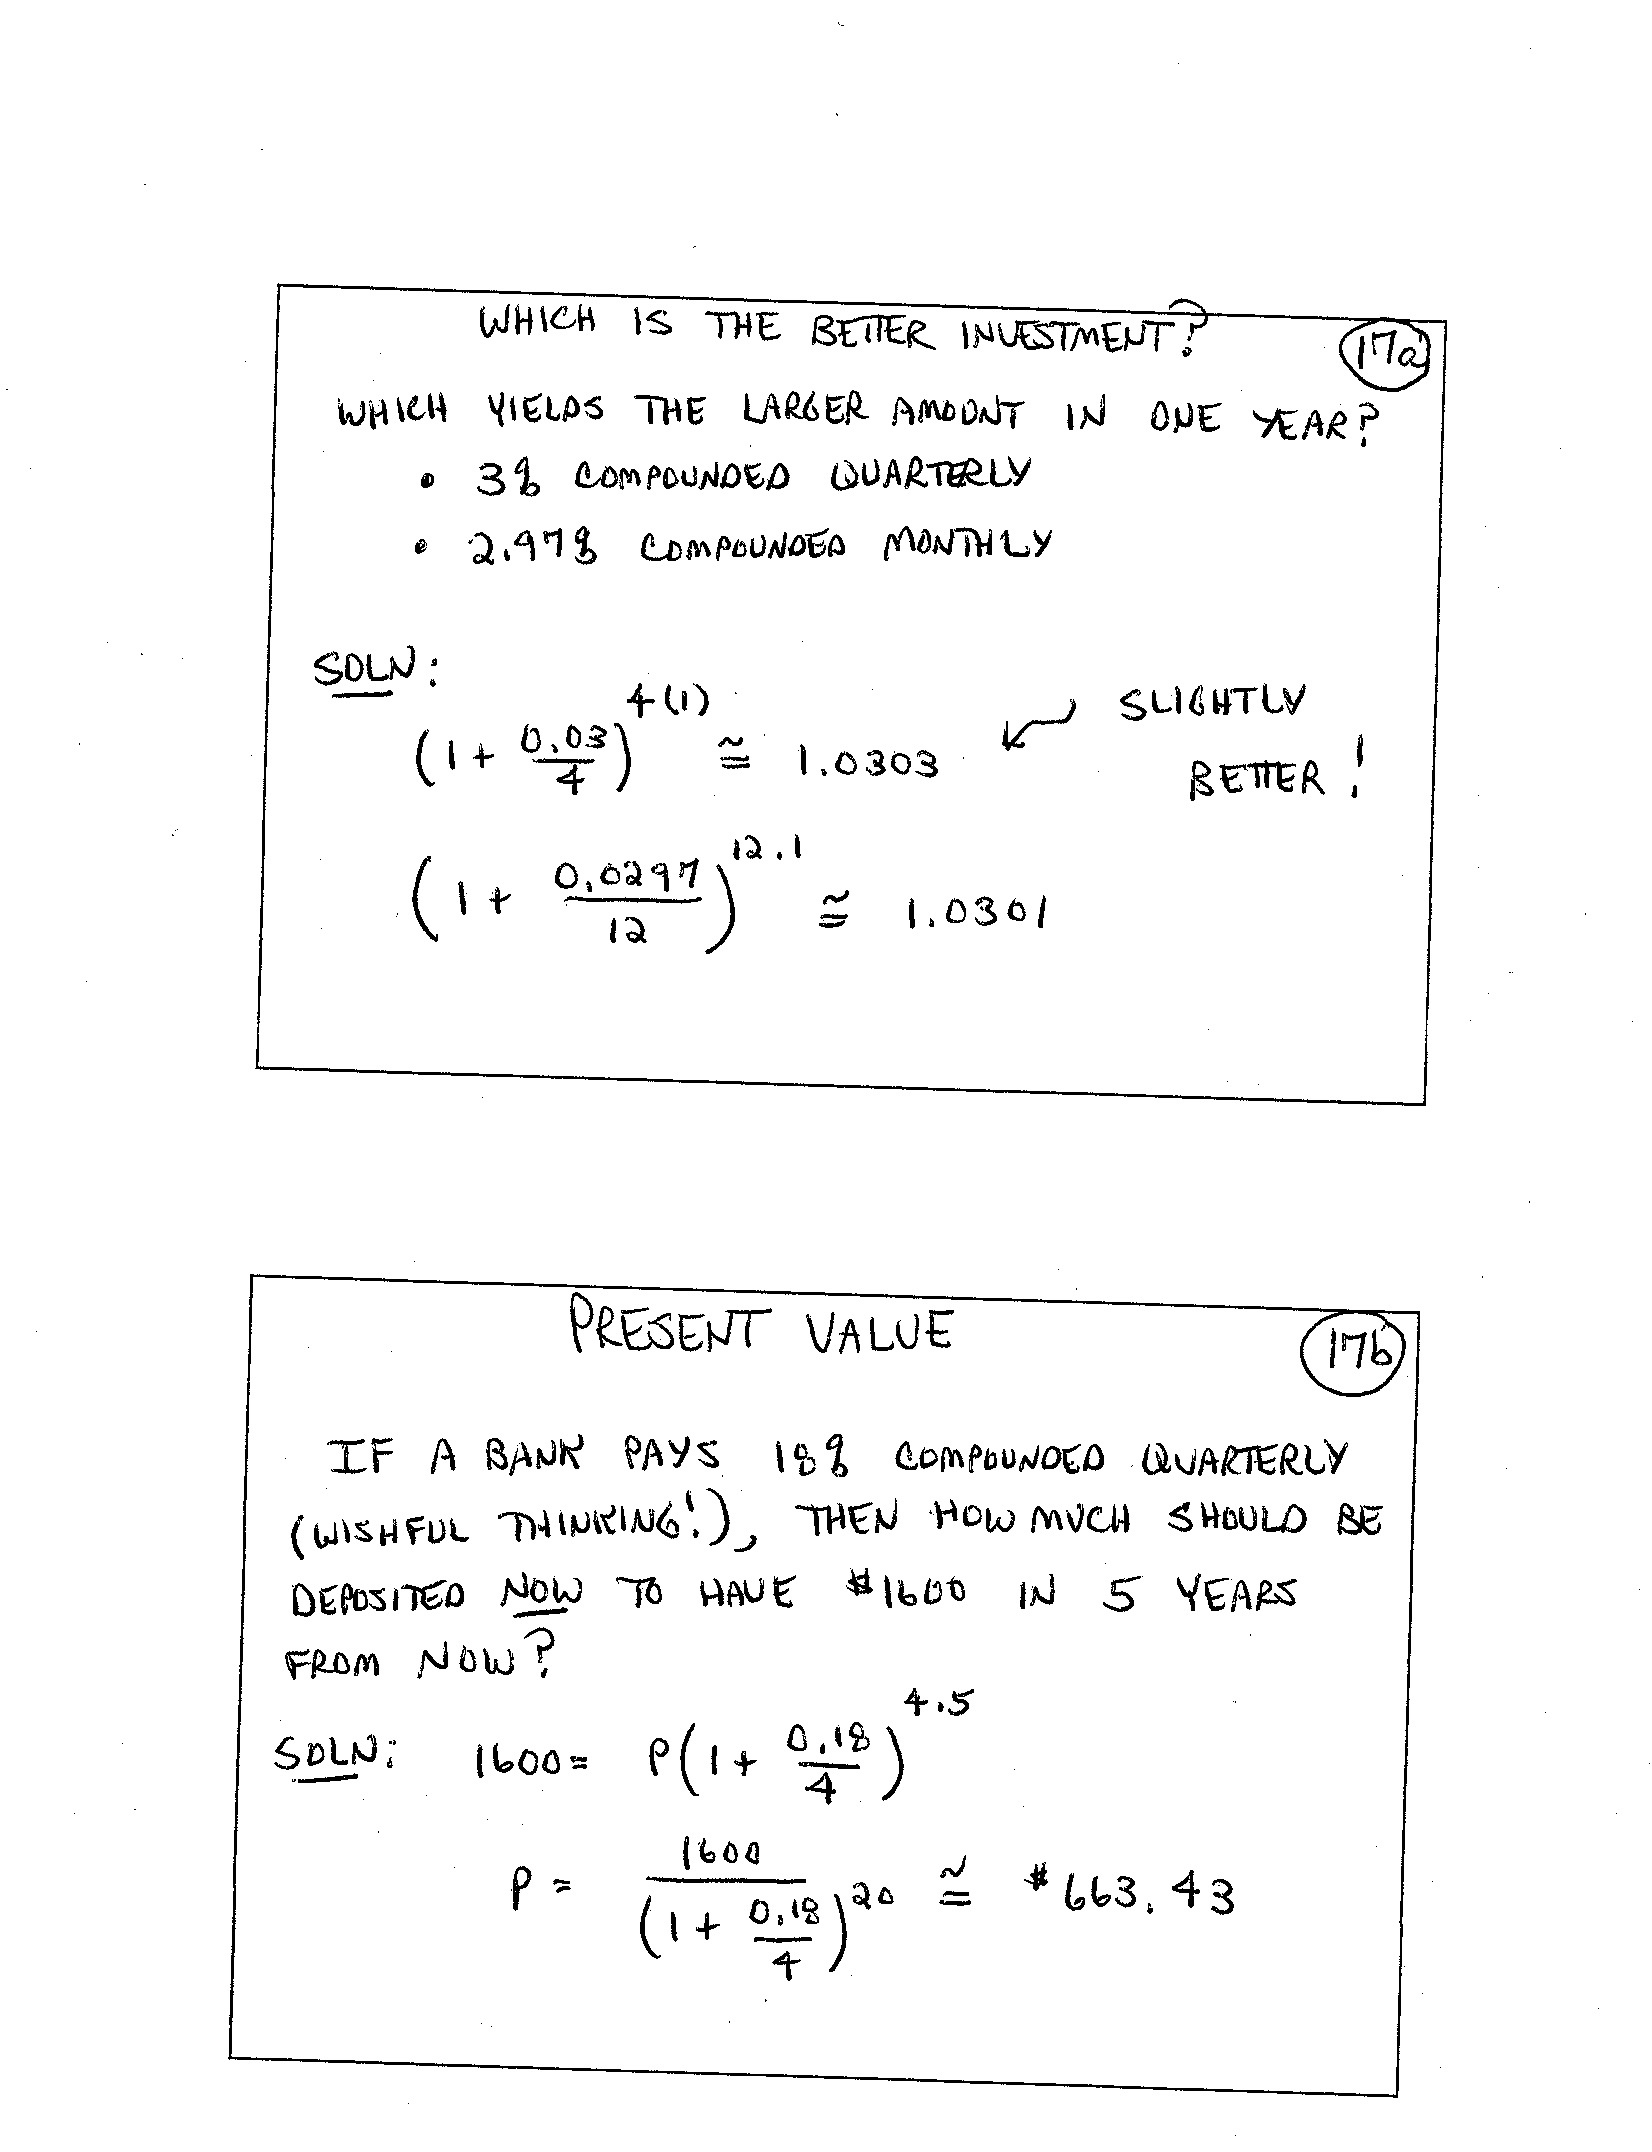 WHICH IS THE BETTER INVESTMENT?
17a
WHICH YIELDS THE LARGER AMOUNT IN ONE YEAR?
• 3% COMPOUNDED QUARTERLY
• 2.97% COMPOUNDED MONTHLY
SOLN:
(1 + 0.03/4)^4(1) ≅ 1.0303 ↙ SLIGHTLY
BETTER!
(1 + 0.0297/12)^12·1 ≅ 1.0301
PRESENT VALUE
17b
IF A BANK PAYS 18% COMPOUNDED QUARTERLY
(WISHFUL THINKING!), THEN HOW MUCH SHOULD BE
DEPOSITED NOW TO HAVE $1600 IN 5 YEARS
FROM NOW?
SOLN: 1600 = P(1 + 0.18/4)^4·5
P = 1600/(1 + 0.18/4)^20 ≅ $663.43